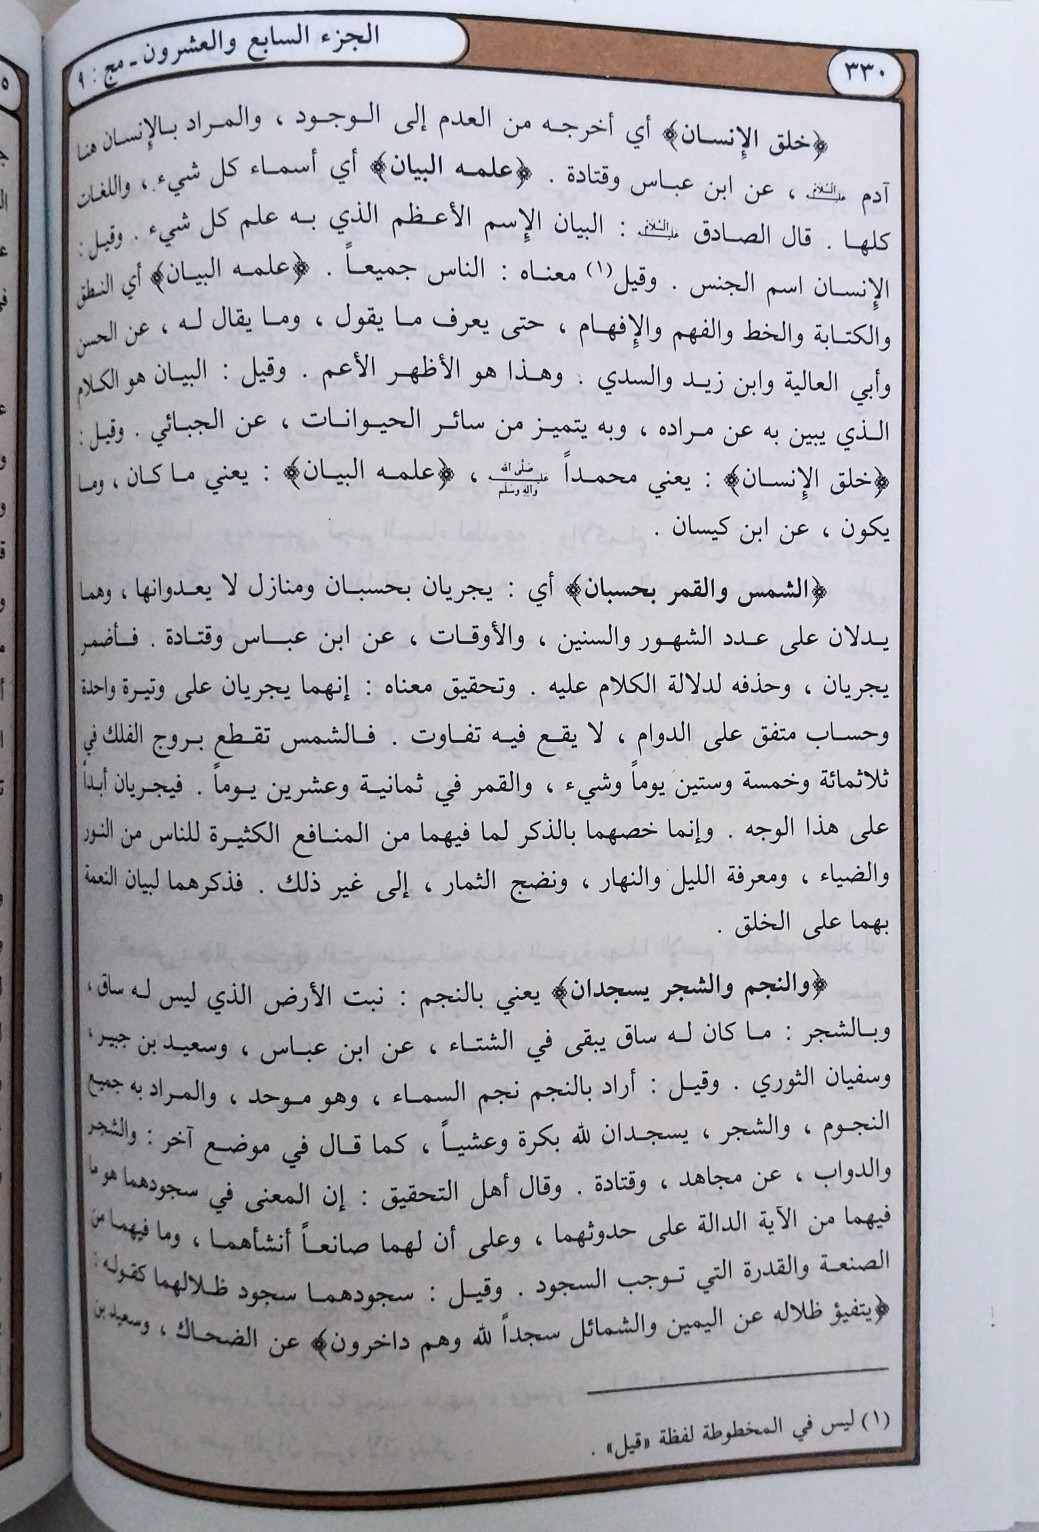 ٣٣٠
الجزء السابع والعشرون - مج : ٩
﴿خلق الإنسان﴾ أي أخرجه من العدم إلى الوجود ، والمراد بالإنسان هنا
آدم عليه السلام ، عن ابن عباس وقتادة . ﴿علمه البيان﴾ أي أسماء كل شيء ، واللغات
كلها . قال الصادق عليه السلام : البيان الإسم الأعظم الذي به علم كل شيء . وقيل :
الإنسان اسم الجنس . وقيل(١) معناه : الناس جميعاً . ﴿علمه البيان﴾ أي النطق
والكتابة والخط والفهم والإفهام ، حتى يعرف ما يقول ، وما يقال له ، عن الحسن
وأبي العالية وابن زيد والسدي . وهذا هو الأظهر الأعم . وقيل : البيان هو الكلام
الذي يبين به عن مراده ، وبه يتميز من سائر الحيوانات ، عن الجبائي . وقيل :
﴿خلق الإنسان﴾ : يعني محمداً صلى الله عليه وآله وسلم ، ﴿علمه البيان﴾ : يعني ما كان ، وما
يكون ، عن ابن كيسان .
﴿الشمس والقمر بحسبان﴾ أي : يجريان بحسبان ومنازل لا يعدوانها ، وهما
يدلان على عدد الشهور والسنين ، والأوقات ، عن ابن عباس وقتادة . فأضمر
يجريان ، وحذفه لدلالة الكلام عليه . وتحقيق معناه : إنهما يجريان على وتيرة واحدة
وحساب متفق على الدوام ، لا يقع فيه تفاوت . فالشمس تقطع بروج الفلك في
ثلاثمائة وخمسة وستين يوماً وشيء ، والقمر في ثمانية وعشرين يوماً . فيجريان أبداً
على هذا الوجه . وإنما خصهما بالذكر لما فيهما من المنافع الكثيرة للناس من النور
والضياء ، ومعرفة الليل والنهار ، ونضج الثمار ، إلى غير ذلك . فذكرهما لبيان النعمة
بهما على الخلق .
﴿والنجم والشجر يسجدان﴾ يعني بالنجم : نبت الأرض الذي ليس له ساق ،
وبالشجر : ما كان له ساق يبقى في الشتاء ، عن ابن عباس ، وسعيد بن جبير ،
وسفيان الثوري . وقيل : أراد بالنجم نجم السماء ، وهو موحد ، والمراد به جميع
النجوم ، والشجر ، يسجدان لله بكرة وعشياً ، كما قال في موضع آخر : والشجر
والدواب ، عن مجاهد ، وقتادة . وقال أهل التحقيق : إن المعنى في سجودهما هو ما
فيهما من الآية الدالة على حدوثهما ، وعلى أن لهما صانعاً أنشأهما ، وما فيهما من
الصنعة والقدرة التي توجب السجود . وقيل : سجودهما سجود ظلالهما كقوله :
﴿يتفيؤ ظلاله عن اليمين والشمائل سجداً لله وهم داخرون﴾ عن الضحاك ، وسعيد بن
(١) ليس في المخطوطة لفظة «قيل» .